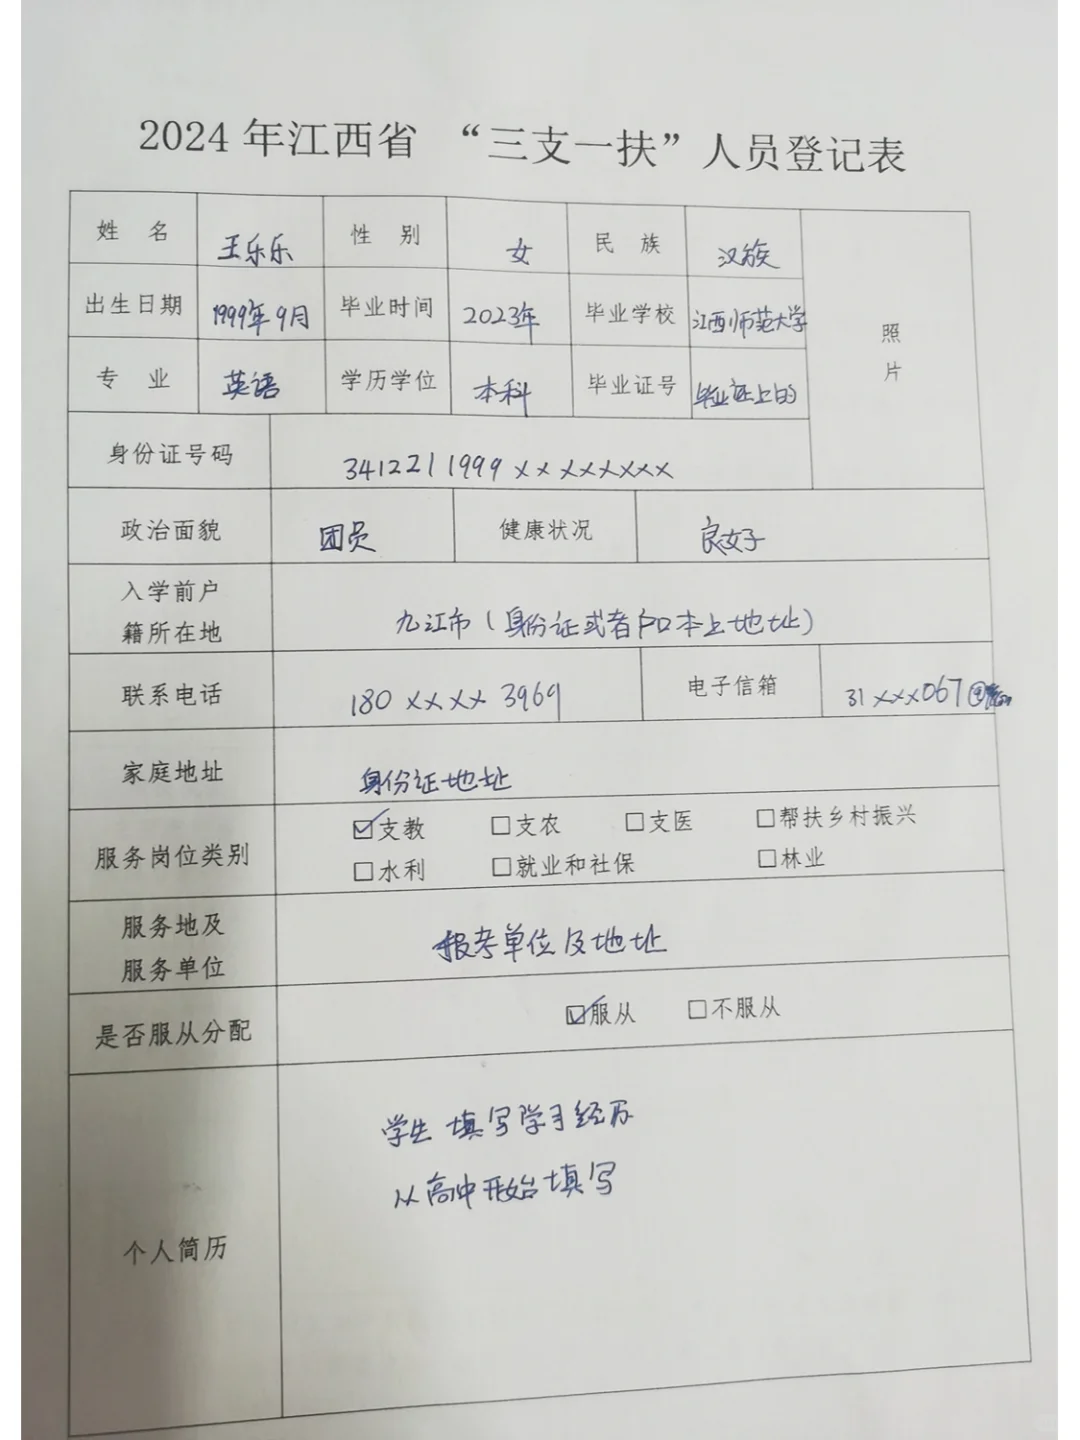 2024年江西省 “三支一扶”人员登记表
姓 名 王乐乐 性 别 女 民 族 汉族
出生日期 1999年9月 毕业时间 2023年 毕业学校 江西师范大学
照片
专 业 英语 学历学位 本科 毕业证号 毕业证上的
身份证号码 3412211999××××××××
政治面貌 团员 健康状况 良好
入学前户
籍所在地 九江市(身份证或者户口本上地址)
联系电话 180××××3969 电子信箱 31×××067@
家庭地址 身份证地址
服务岗位类别
☑支教 □支农 □支医 □帮扶乡村振兴
□水利 □就业和社保 □林业
服务地及
服务单位 报考单位及地址
是否服从分配 ☑服从 □不服从
个人简历
学生填写学习经历
从高中开始填写